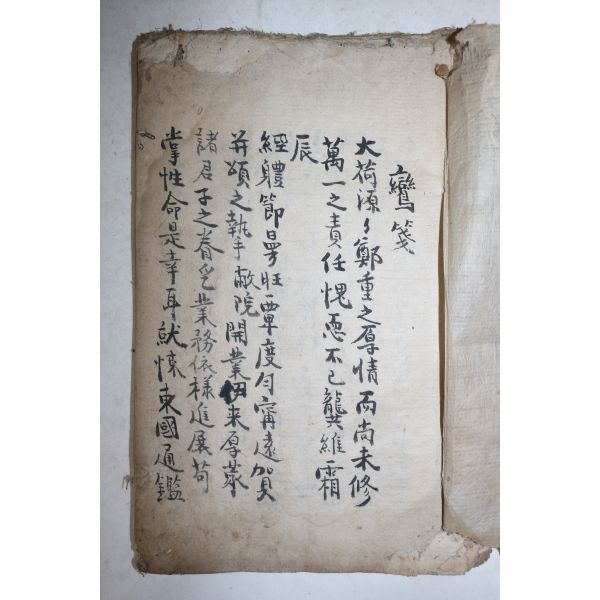 鸞箋
大荷源〻鄭重之厚情而尚未修
萬一之責任愧恧不已龔維霜
辰
經體節晏旺覃度勻甯遠賀
并頌之執事敝院開業伊来厚蒙
諸君子之眷受業務依樣進展苟
掌性命是幸耳就悚東國通鑑